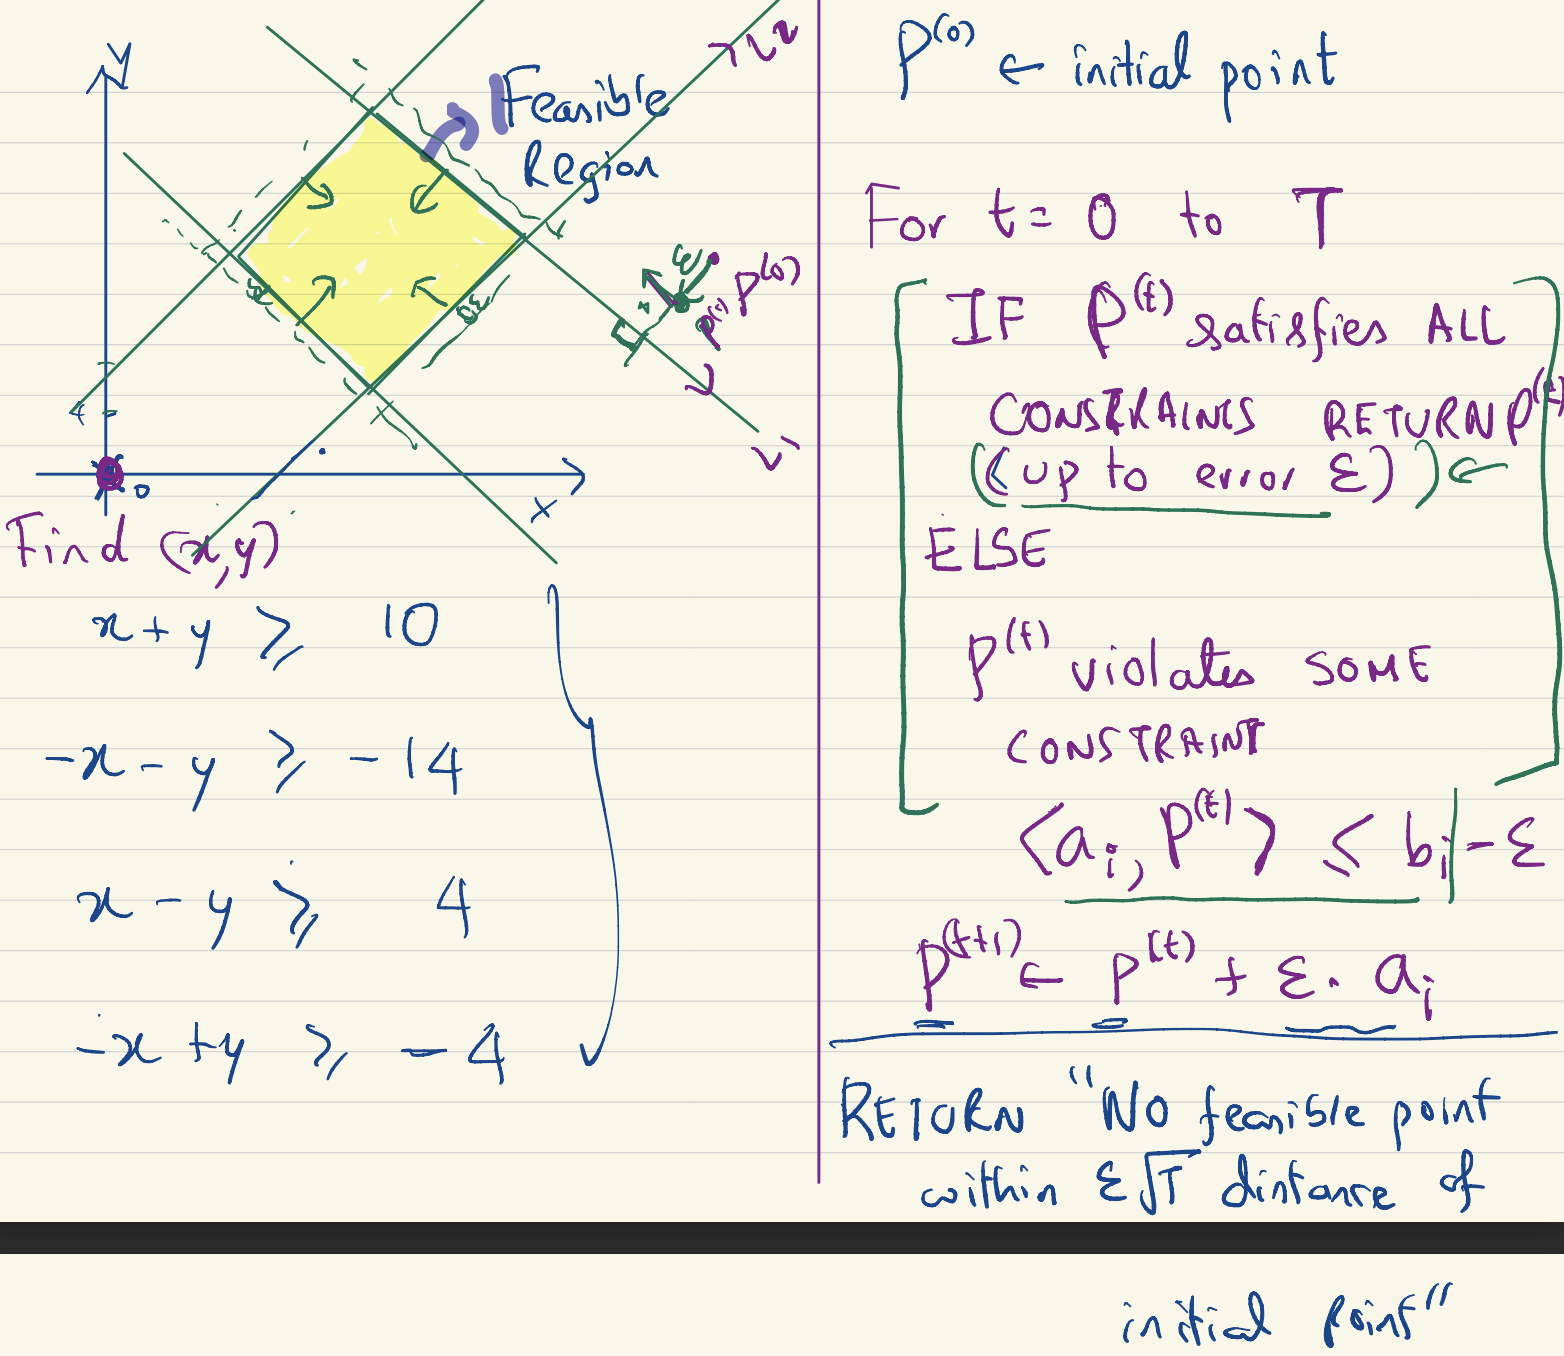 y
L2
Feasible
Region
ε
P^(0)
P^(1)
L1
0
x
Find (x,y)
x + y ≥ 10
-x - y ≥ -14
x - y ≥ 4
-x + y ≥ -4
P^(0) ← initial point
For t = 0 to T
IF P^(t) satisfies ALL
CONSTRAINTS RETURN P^(t)
(up to error ε) ←
ELSE
P^(t) violates SOME
CONSTRAINT
⟨a_i, P^(t)⟩ ≤ b_i - ε
P^(t+1) ← P^(t) + ε. a_i
RETURN "NO feasible point
within ε√T distance of
initial point"